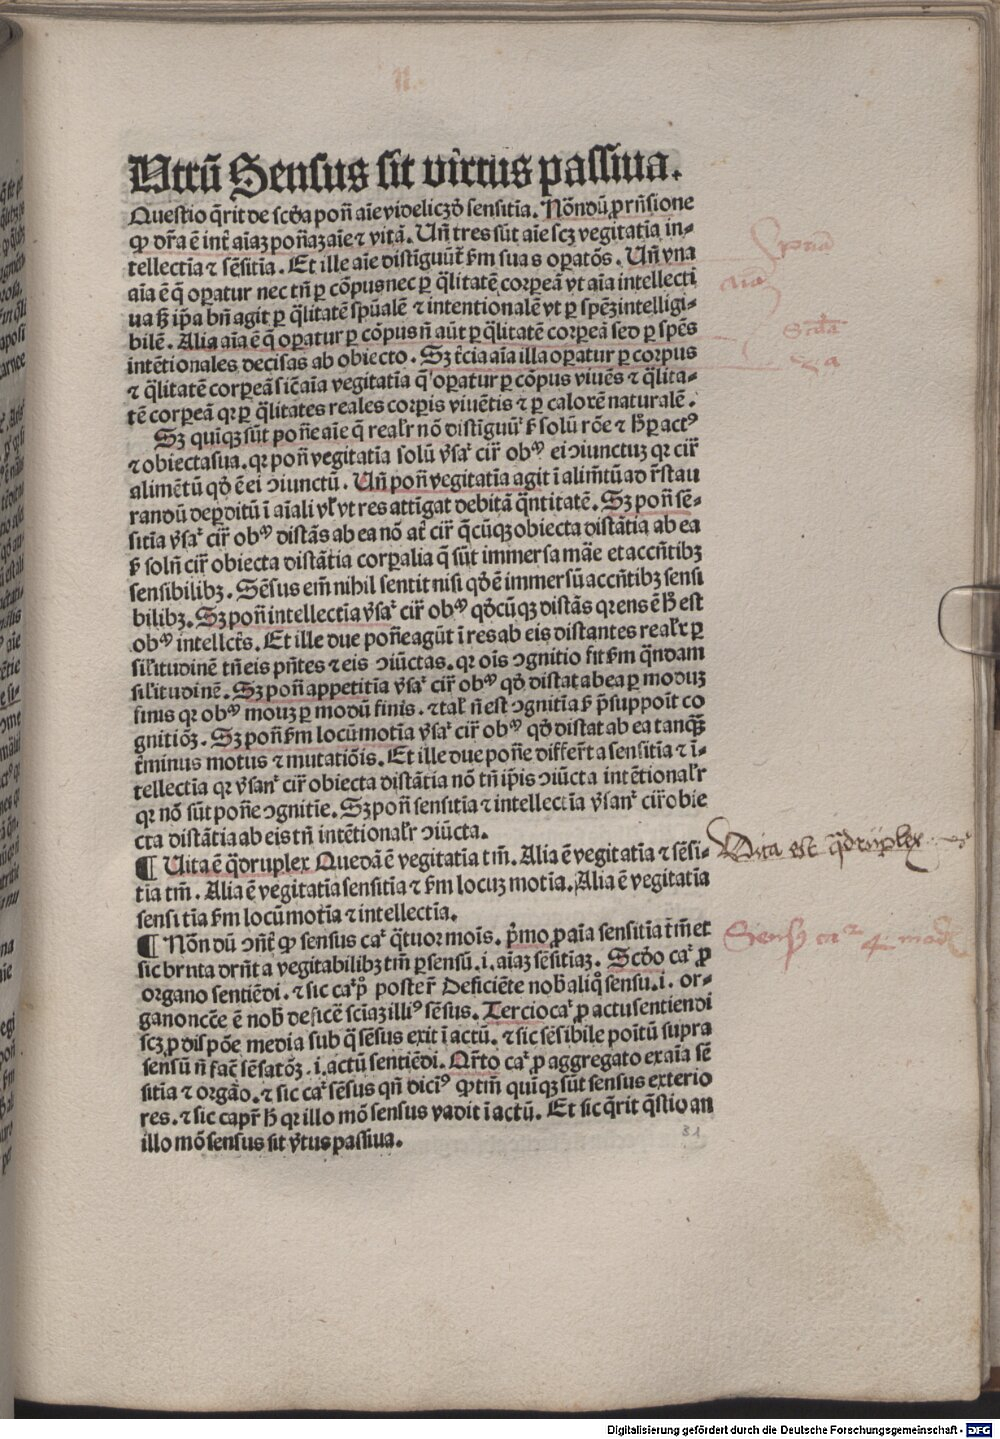 Utrū Sensus sit virtus passiua.
Questio q̄rit de scḋa poñ aīe videliczḋ sensitīa. Nōndū ꝓ rn̄sione
ꝙ dr̄a ē int̄ aīaz poñaz aīe ⁊ vitā. Uñ tres sūt aīe scz vegitatīa in⸗
tellectīa ⁊ sēsitīa. Et ille aīe distīguūt̄ ẜm suas oꝑatōs. Uñ vna
aīa ē q̄ oꝑatur nec tñ ꝑ cōpus nec ꝑ q̄litatē corpeā vt aīa intellecti
ua ẜꝫ ip̄a bñ agit ꝑ q̄litatē sp̄ualē ⁊ intentionalē vt ꝑ spēz intelligi⸗
bilē. Alia aīa ē q̄ oꝑatur ꝑ cōpus ñ aūt ꝑ q̄litatē corpeā sed ꝑ spēs
intētionales decisas ab obiecto. Sꝫ t̄cia aīa illa oꝑatur ꝑ corpus
⁊ q̄litatē corpeā sic̄ aīa vegitatīa q̄ oꝑatur ꝑ cōpus viuēs ⁊ q̄lita⸗
tē corpeā qꝛ ꝑ q̄litates reales corpis viuētis ⁊ ꝑ calorē naturalē.
Sꝫ quīqꝫ sūt poñe aīe q̄ real̄r nō distīguūt̄ ẜ solū rōe ⁊ h̄ ꝑ actꝰ
⁊ obiecta sua. qꝛ poñ vegitatīa solū v̄saꝉ cir̄ obᵐ ei ꝯiunctuꝫ qꝛ cir̄
alimētū qḋ ē ei ꝯiunctū. Uñ poñ vegitatīa agit ī alim̄tū ad r̄stau
randū deꝑditū ī aīali vl̄ vt res attīgat debitā q̄ntitatē. Sꝫ poñ sē⸗
sitīa v̄saꝉ cir̄ obᵐ distās ab ea nō at̄ cir̄ q̄cūqꝫ obiecta distātia ab ea
ẜ solū cir̄ obiecta distātia corpalia q̄ sūt immersa māe et accn̄tibꝫ
sensibilibꝫ. Sēsus em̄ nihil sentit nisi qḋ ē immersū accn̄tibꝫ sensi
bilibꝫ. Sꝫ poñ intellectīa v̄saꝉ cir̄ obᵐ qḋcūqꝫ distās qꝛ ens ē h̄ est
obᵐ intellctꝰ. Et ille due poñe agūt ī res ab eis distantes real̄r ꝑ
sil̄itudinē tñ eis pn̄tes ⁊ eis ꝯiūctas. qꝛ oīs ꝯgnitio fit ẜm q̄ndam
sil̄itudinē. Sꝫ poñ appetitīa v̄saꝉ cir̄ obᵐ qḋ distat ab ea ꝑ moduꝫ
finis qꝛ obᵐ mouꝫ ꝑ modū finis. ⁊ tal̄ ñ est ꝯgnitīa ẜ p̄suppoīt co
gnitiōꝫ. Sꝫ poñ ẜm locū motīa v̄saꝉ cir̄ obᵐ qḋ distat ab ea tanqꝫ
t̄minus motus ⁊ mutatiōis. Et ille due poñe differt̄ a sensitīa ⁊ ī⸗
tellectīa qꝛ v̄sanꝉ cir̄ obiecta distātia nō tñ ip̄is ꝯiūcta intētional̄r
qꝛ nō sūt poñe ꝯgnitīe. Sꝫ poñ sensitīa ⁊ intellectīa v̄sanꝉ cir̄ obie
cta distātia ab eis tñ intētional̄r ꝯiūcta.
¶ Uita ē q̄druplex Quedā ē vegitatīa tm̄. Alia ē vegitatīa ⁊ sēsi⸗
tīa tm̄. Alia ē vegitatīa sensitīa ⁊ ẜm locuꝫ motīa. Alia ē vegitatīa
sensitīa ẜm locū motīa ⁊ intellectīa.
¶ Nōn dū ꝯn̄t̄ ꝙ sensus caꝉ q̄tuor moīs. p̄mo ꝓ aīa sensitīa tm̄ et
sic bruta drn̄t a vegitabilibꝫ tm̄ ꝑ sensū. i. aīaꝫ sēsitīaꝫ. Scḋo caꝉ ꝓ
organo sentiēdi. ⁊ sic caꝉ p̊ poster̄ Deficiēte nob̄ aliq̄ sensu. i. or⸗
gano ncc̄e ē nob̄ deficē scīaꝫ illiꝰ sēsus. Tercio caꝉ ꝓ actu sentiendi
scꝫ ꝓ dispōe media sub q̄ sēsus exit ī actū. ⁊ sic sēsibile poītū supra
sensū ñ fac̄ sēsatōꝫ. i. actū sentiēdi. Qr̄to caꝉ ꝓ aggregato ex aīa sē
sitīa ⁊ orgāo. ⁊ sic caꝉ sēsus qñ dīciꝉ ꝙ tm̄ quīqꝫ sūt sensus exterio
res. ⁊ sic capr̄ h̄ qꝛ illo mō sensus vadit ī actū. Et sic q̄rit q̄stio an
illo mō sensus sit v̄tus passiua.
Vita est q̄druplex
Sensꝰ caꝉ 4 mod
81
Digitalisierung gefördert durch die Deutsche Forschungsgemeinschaft - DFG